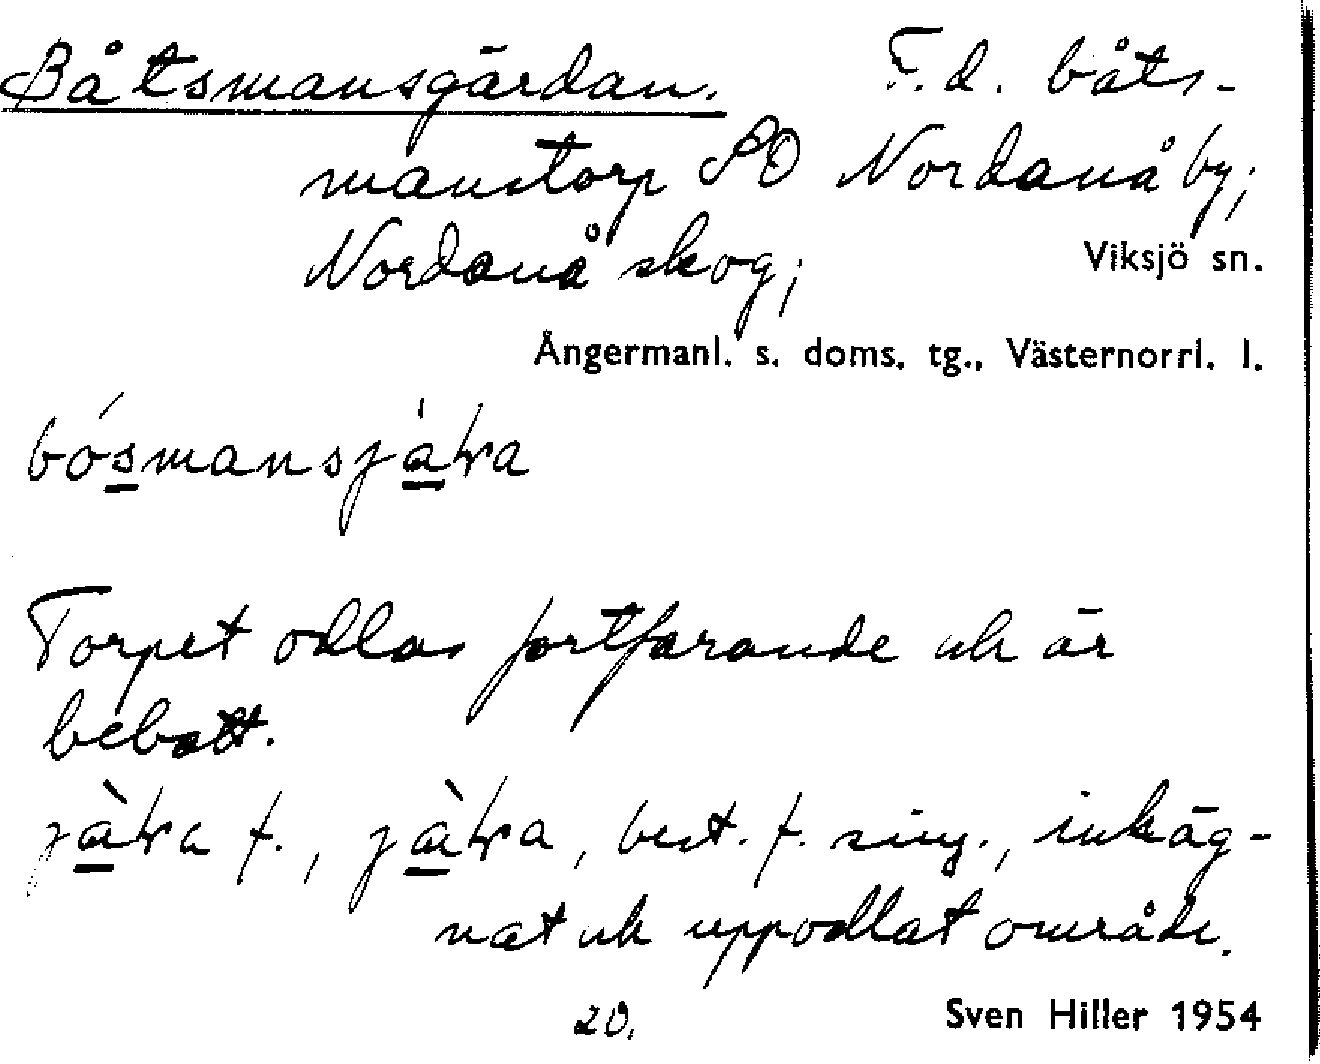 Båtsmansgärdan. F.d. båts-
manstorp SO Nordanå by;
Nordanå skog; Viksjö sn.
Ångermanl. s. doms. tg., Västernorrl. l.
Torpet odlas fortfarande och är
bebott.
f., best. f. sing., inhäg-
nat och uppodlat område.
20. Sven Hiller 1954